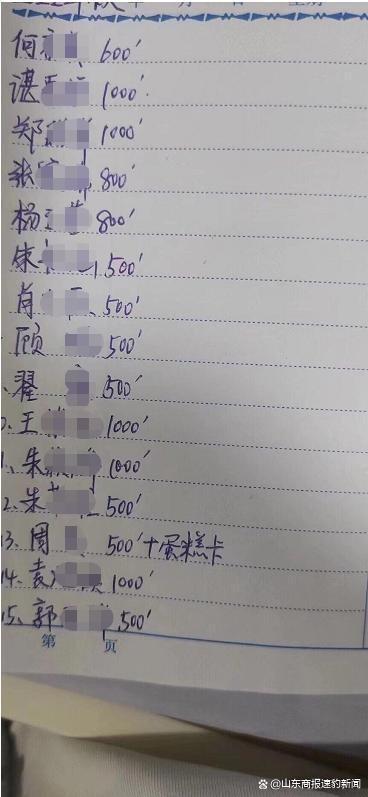 何 600'
谌 1000'
郑 1000'
张 800'
杨 800'
朱 500'
肖 500'
顾 500'
翟 500'
王 1000'
朱 1000'
2、朱 500'
13、周 500'+蛋糕卡
14、袁 1000'
15、郭 500'
第 页
@山东商报速豹新闻